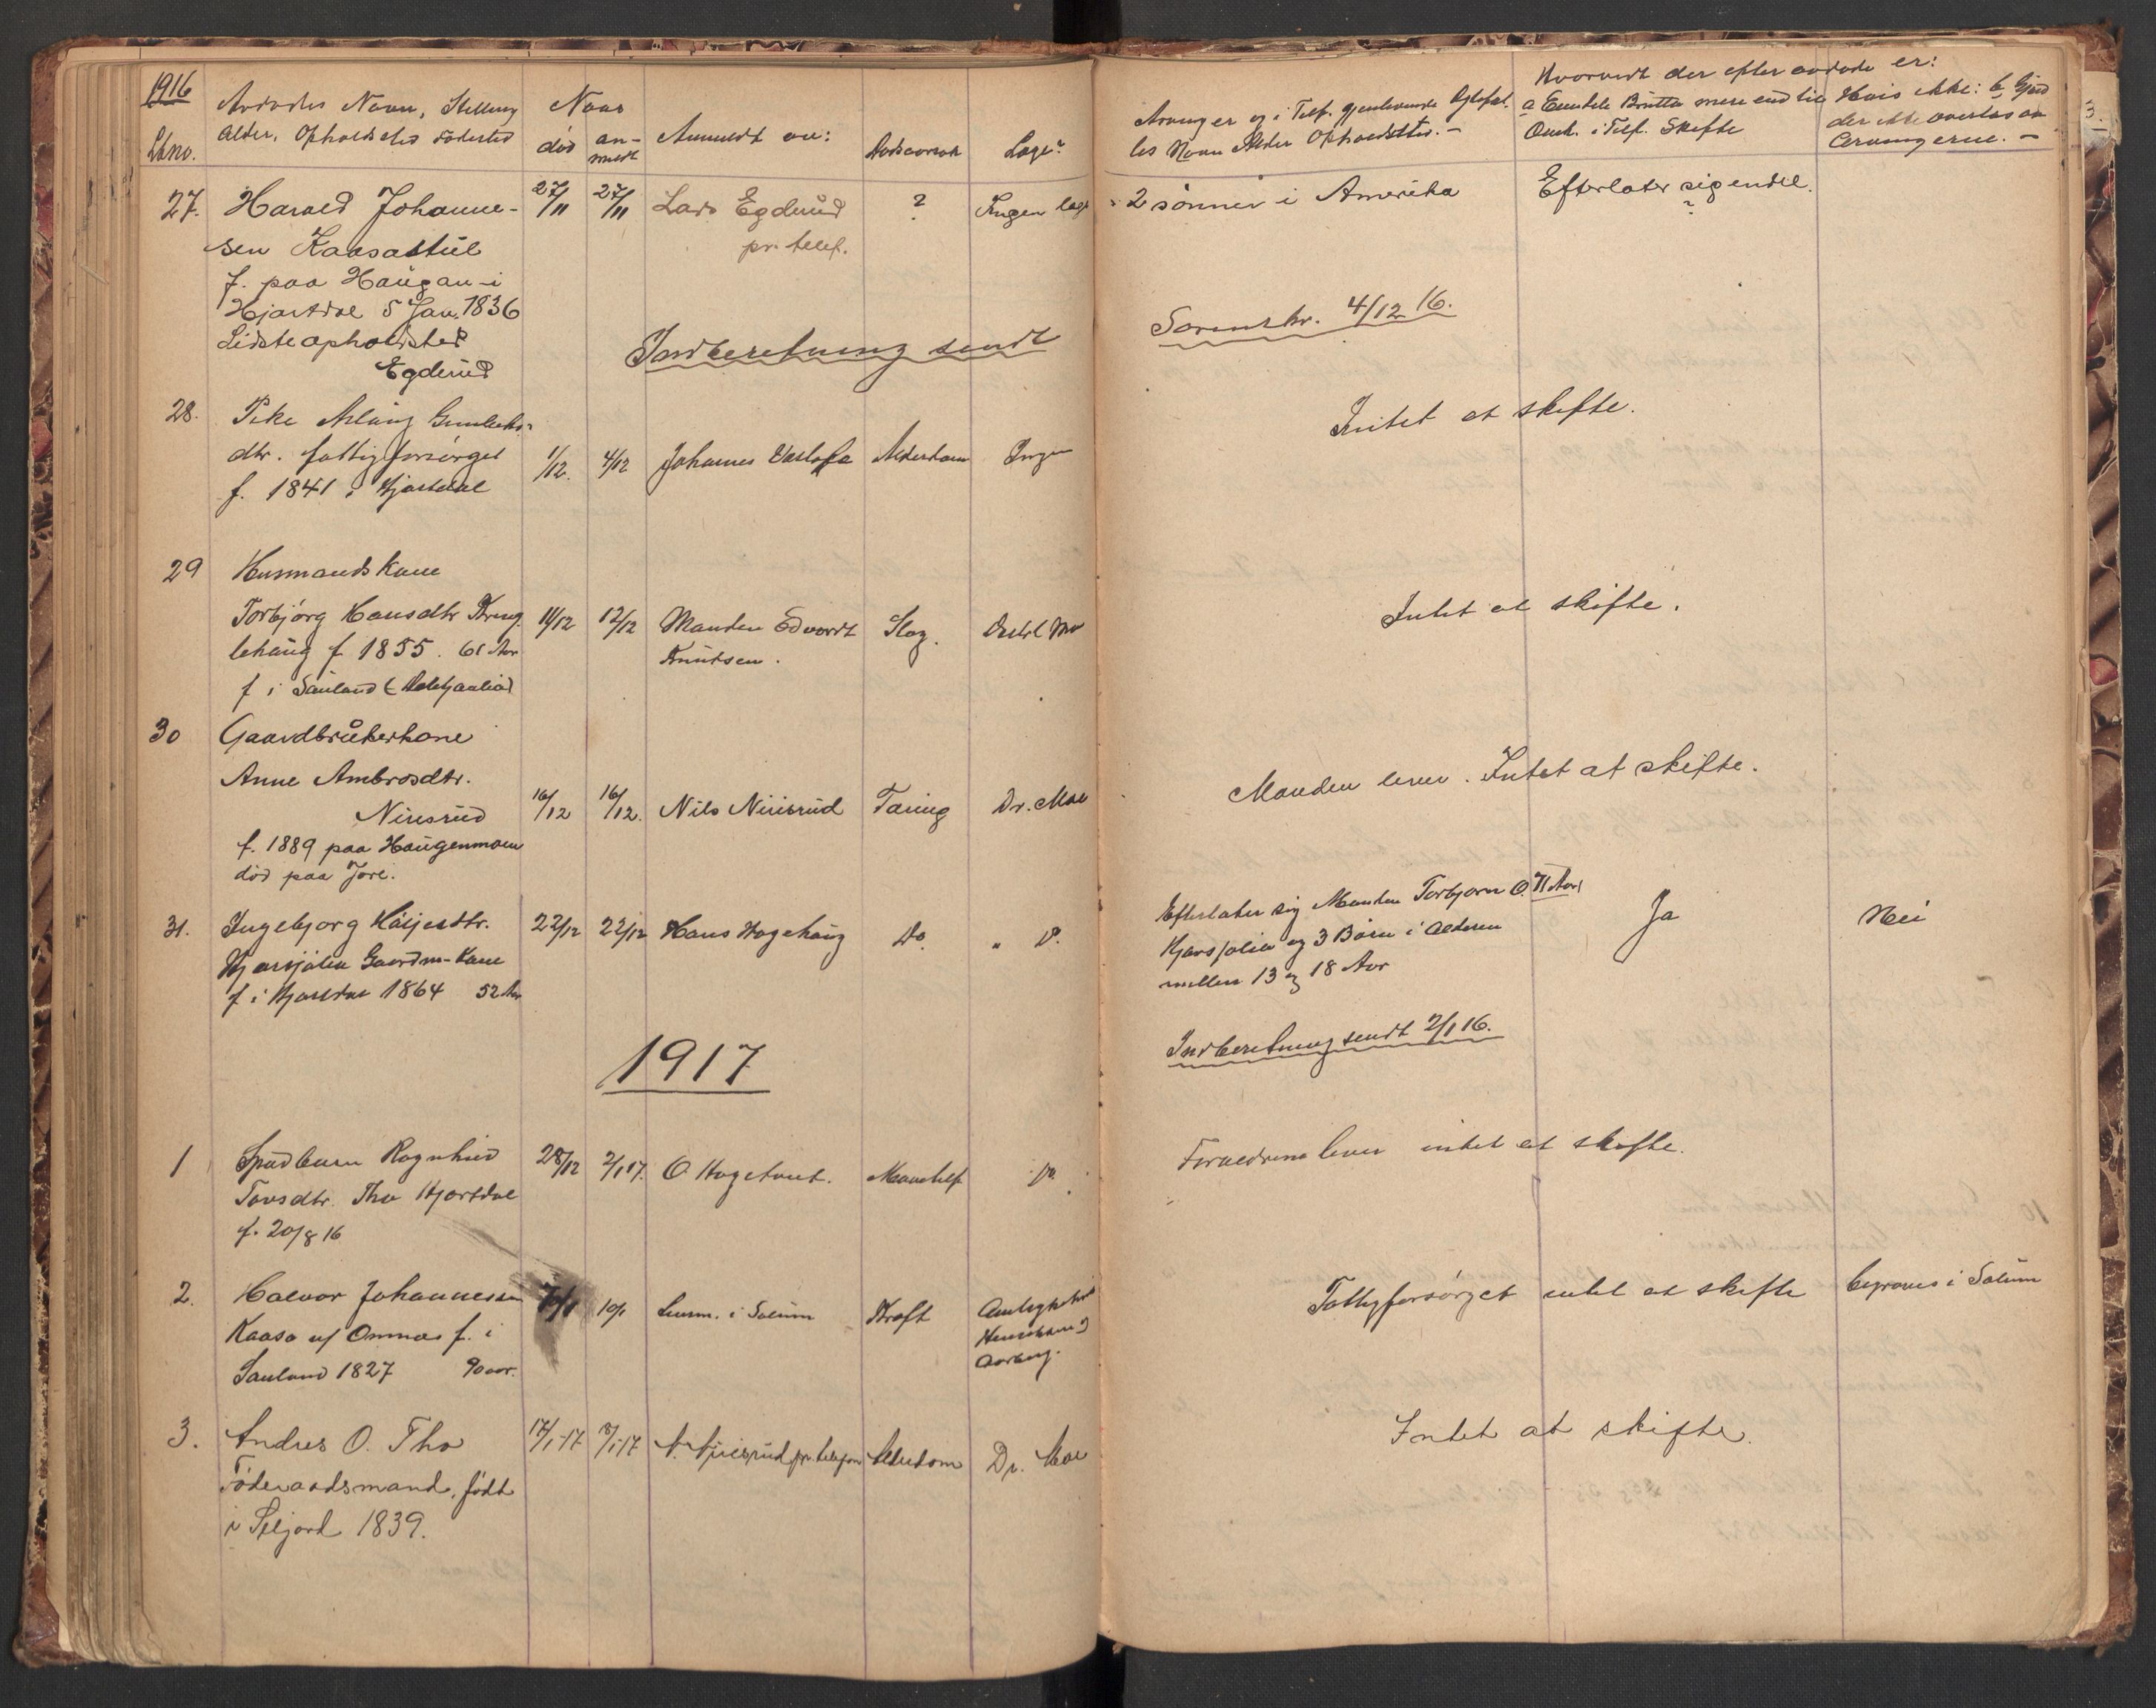 1916
Avdødes Navn, Stilling
Alder, Opholdssted Fødested
Lbno.
Naar
død an-
meldt
Anmeldt av:
Dødsaarsak
Læge?
Arvinger og i Tilf. gjenlevende Egtefæl.
les Navn Alder Opholdssted. -
Hvorvidt der efter avdøde er:
a Eiendele Brutto mere end til
Omk. i Tilf. Skifte
Hvis ikke: b Gjæld
der ikke overtas av
Arvingerne. -
27. Harald Johanne- 27/11 27/11 Lars Egderud ? Ingen læge 2 sønner i Amerika Efterlater sig endel.
sen Kaasastul pr. telef. ?
f. paa Haugan i
Hjartdal 5 Jan. 1836
Sidste opholdsted
Egderud
Indberetning sendt Sorenskr. 4/12 16.
28. Pike Aslaug Gunleiks-
dtr. fattigforsørget 1/12. 4/12 Johannes Alderdom Ingen Intet at skifte.
f. 1841 i Hjartdal
29 Husmandskone
Torbjørg Hansdtr 11/12 12/12 Manden Edvardt Slag. Intet at skifte.
lehaug f 1855. 61 Aar Knutsen.
f i Sauland
30 Gaardbrukerkone
Anne Ambrosdtr.
Nirisrud 16/12 16/12. Nils Nirisrud Tæring Dr. Moe Manden lever. Intet at skifte.
f. 1889 paa Haugenmoen
død paa Jore.
31. Ingebjørg Høljesdtr. 22/12 22/12 Hans Hagehaug Do. " D. Efterlater sig Manden Torbjørn O. 71 Aar Ja Nei
Hjarsjølia Gaardm-kone
Hjarsjølia og 3 Børn i Alderen
f i Hjartdal 1864 52 Aar
mellem 13 og 18 Aar
Indberetning sendt 2/1 16.
1917
1 Spædbarn Ragnhild 28/12 2/1 17. O Hagetveit. Do Forældrene lever intet at skifte.
Tovsdtr. Tho Hjartdal
f. 20/8 16
2. Halvor Johannessen 7/1 10/1 Lensm. i Solum Kræft Fattigforsørget intet at skifte begraves i Solum
Kaasa af Omnæs f. i
Sauland 1827 90 aar.
3. Andres O. Tho 17/1-17 18/1 17 N. Nirisrud pr. telefon Alderdom Dr. Moe Intet at skifte.
Føderaadsmand, født
i Seljord 1839.